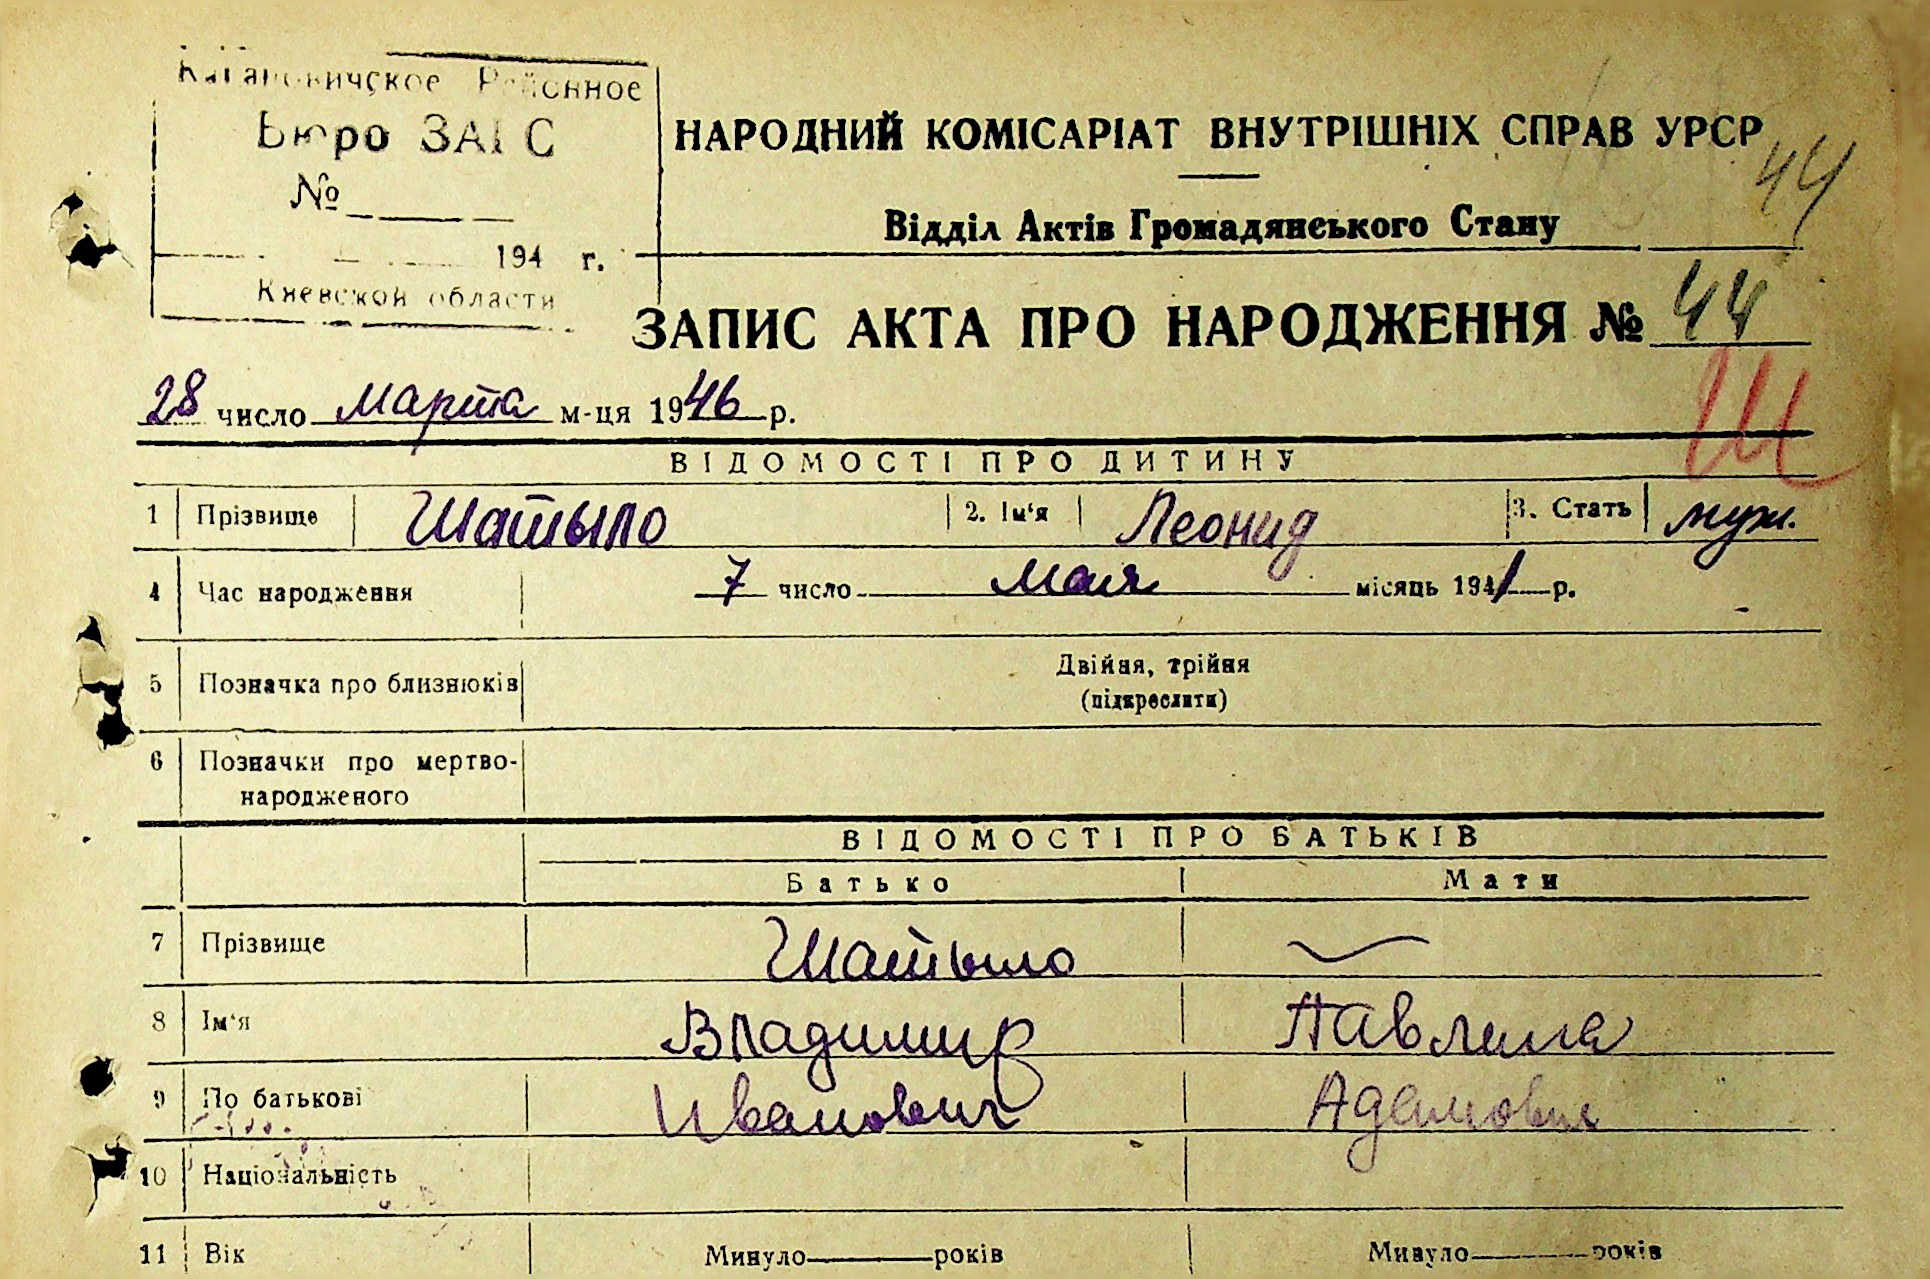 Кагановичское Районное
Бюро ЗАГС
№
194 г.
Киевской области
НАРОДНИЙ КОМІСАРІАТ ВНУТРІШНІХ СПРАВ УРСР
44
Відділ Актів Громадянського Стану
ЗАПИС АКТА ПРО НАРОДЖЕННЯ № 44
Ш
28 число марта м-ця 1946 р.
ВІДОМОСТІ ПРО ДИТИНУ
1 Прізвище Шатыло 2. Ім'я Леонид 3. Стать муж.
4 Час народження 7 число мая місяць 1941 р.
5 Позначка про близнюків Двійня, трійня
(підкреслити)
6 Позначки про мертво-
народженого
ВІДОМОСТІ ПРО БАТЬКІВ
Батько Мати
7 Прізвище Шатыло
8 Ім'я Владимир Павлина
9 По батькові Иванович Адамовна
10 Національність
11 Вік Минуло років Минуло років